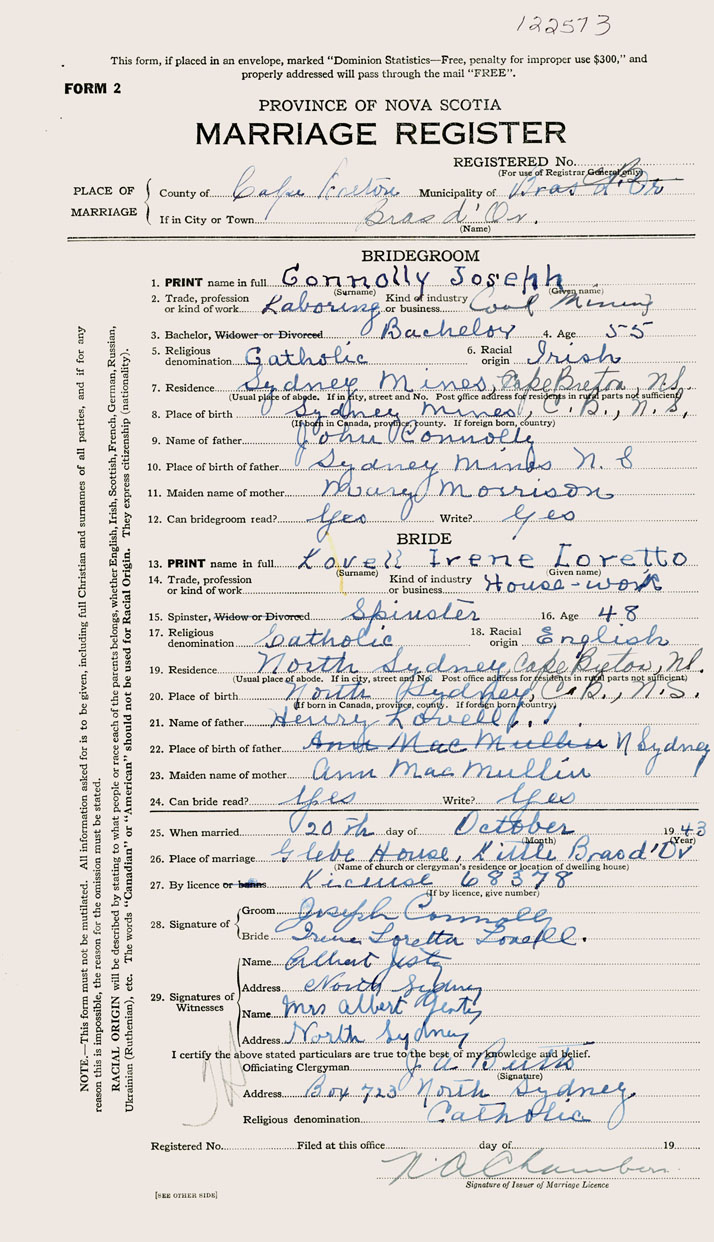 122573
This form, if placed in an envelope, marked "Dominion Statistics—Free, penalty for improper use $300," and
properly addressed will pass through the mail "FREE".
FORM 2
PROVINCE OF NOVA SCOTIA
MARRIAGE REGISTER
REGISTERED No.
(For use of Registrar General only)
PLACE OF MARRIAGE
County of Cape Breton Municipality of Bras d'Or
If in City or Town Bras d'Or.
(Name)
BRIDEGROOM
1. PRINT name in full Connolly Joseph
(Surname) (Given name)
2. Trade, profession or kind of work Laboring Kind of industry or business Coal Mining
3. Bachelor, Widower or Divorced Bachelor 4. Age 55
5. Religious denomination Catholic 6. Racial origin Irish
7. Residence Sydney Mines, Cape Breton, N.S.
(Usual place of abode. If in city, street and No. Post office address for residents in rural parts not sufficient)
8. Place of birth Sydney Mines, C.B., N.S,
(If born in Canada, province, county. If foreign born, country)
9. Name of father John Connolly
10. Place of birth of father Sydney Mines N. S
11. Maiden name of mother Mary Morrison
12. Can bridegroom read? Yes Write? Yes
BRIDE
13. PRINT name in full Lovell Irene Loretto
(Surname) (Given name)
14. Trade, profession or kind of work Kind of industry or business House-work
15. Spinster, Widow or Divorced Spinster 16. Age 48
17. Religious denomination Catholic 18. Racial origin English
19. Residence North Sydney, Cape Breton, NS.
(Usual place of abode. If in city, street and No. Post office address for residents in rural parts not sufficient)
20. Place of birth North Sydney, C.B., N.S.
(If born in Canada, province, county. If foreign born, country)
21. Name of father Henry Lovell
22. Place of birth of father Ann MacMullin N Sydney
23. Maiden name of mother Ann MacMullin
24. Can bride read? Yes Write? Yes
25. When married 20th day of October 1943
(Month) (Year)
26. Place of marriage Glebe House, Little Bras d'Or
(Name of church or clergyman's residence or location of dwelling house)
27. By licence or banns License 68378
(If by licence, give number)
28. Signature of Groom Joseph Connolly
Bride Irene Loretta Lovell.
29. Signatures of Witnesses
Name Albert Jesty
Address North Sydney
Name Mrs Albert Jesty
Address North Sydney
I certify the above stated particulars are true to the best of my knowledge and belief.
Officiating Clergyman J. A. Butts
(Signature)
Address Box 723 North Sydney
Religious denomination Catholic
Registered No. Filed at this office day of 19
Signature of Issuer of Marriage Licence
[SEE OTHER SIDE]
NOTE.—This form must not be mutilated. All information asked for is to be given, including full Christian and surnames of all parties, and if for any
reason this is impossible, the reason for the omission must be stated.
RACIAL ORIGIN will be described by stating to what people or race each of the parents belongs, whether English, Irish, Scottish, French, German, Russian,
Ukrainian (Ruthenian), etc. The words "Canadian" or "American" should not be used for Racial Origin. They express citizenship (nationality).